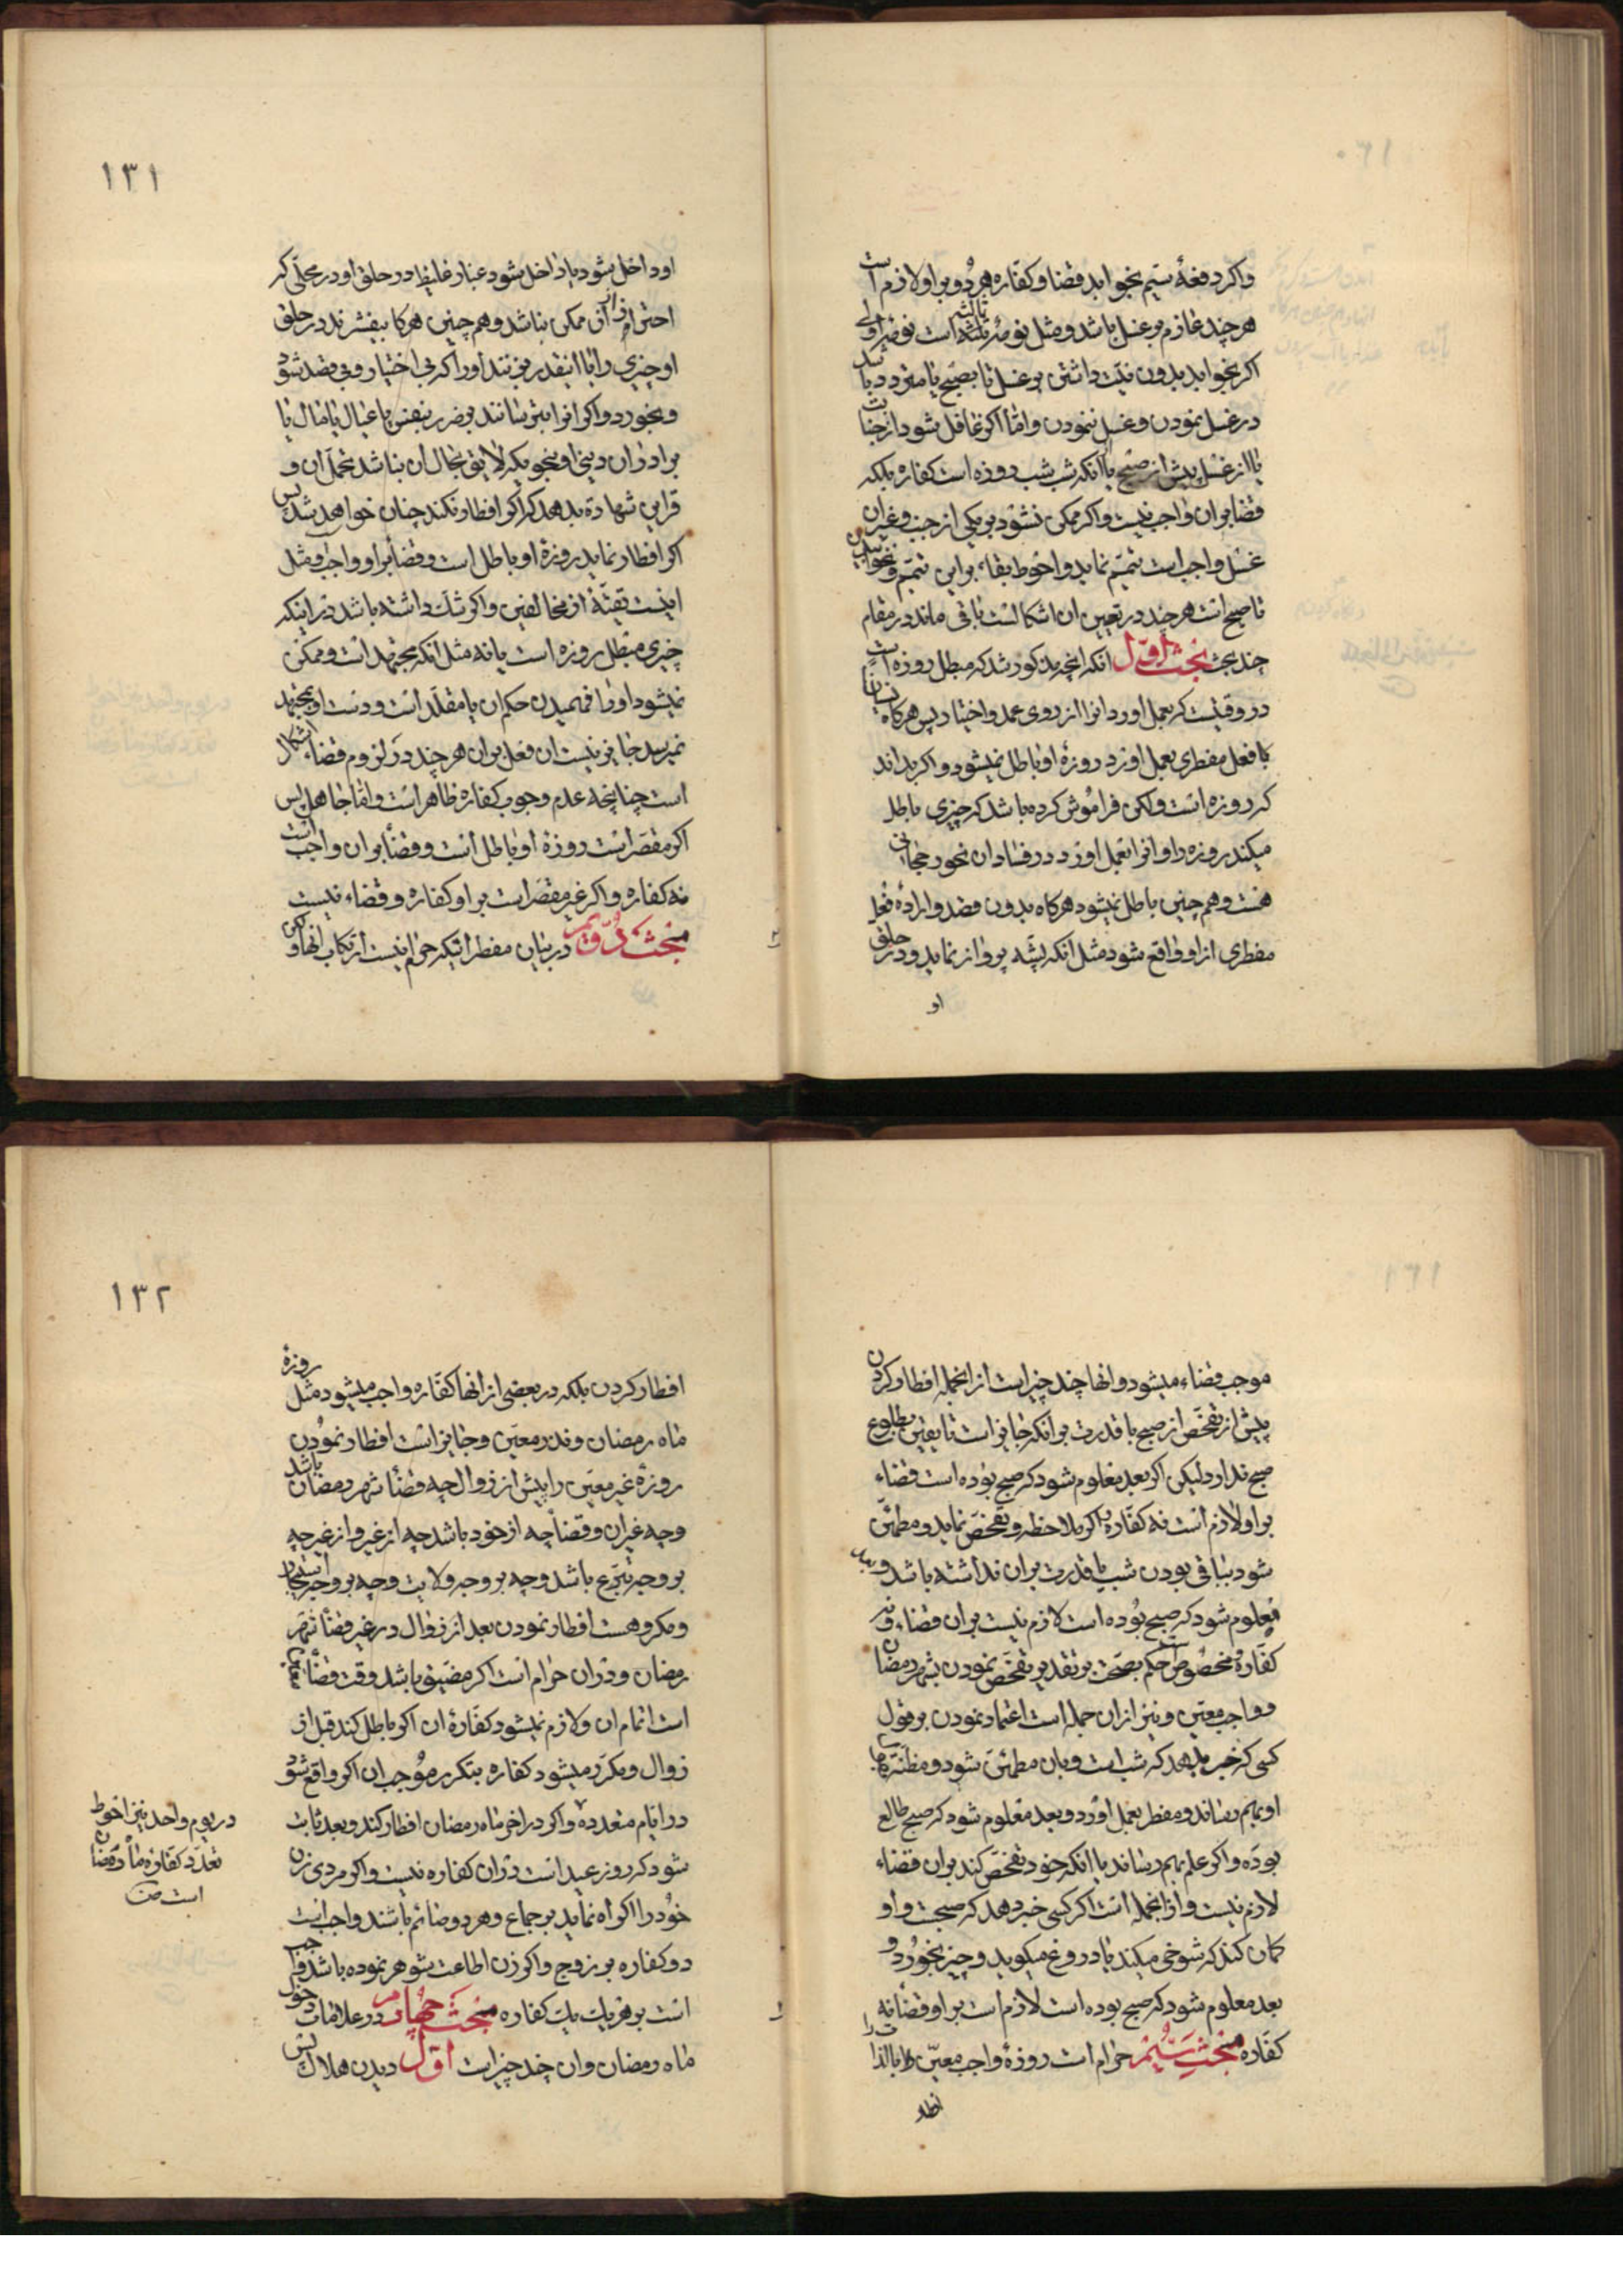 واکر دفعهٔ سیّم بخوابد قضا و کفاره هر دو بر او لازم است
هر چند عازم بر غسل باشد و مثل نومهٔ ثالثه است نومهٔ اولی
اکر بخوابد بدون نیّت داشتن بر غسل تا بصبح یا متردد باشد
در غسل نمودن و غسل ننمودن و امّا اکر غافل شود از جنابت
یا از غسل پیش از صبح یا آنکه شب شب روزه است کفاره بلکه
قضا بر ان واجب نیست و اکر ممکن نشود بر یکی از جنب و غیر ان
غسل واجب است تیمّم نماید و احوط بقاء بر این تیمّم و نخوابیدن
تا صبح است هر چند در تعیین ان اشکالست باقی ماند در مقام
چند بحث بحث اوّل انکه انچه مذکور شد که مبطل روزه است
در وقتیست که بعمل اورد انرا از روی عمد و اختیار پس هرکاه نسیانا
با فعل مفطری بعمل اورد روزهٔ او باطل نمیشود و اکر بداند
که روزه است و لکن فراموش کرده باشد که چیزی باطل
میکند روزه را و انرا بعمل اورد در فساد ان نحو رجحانی
هست و همچنین باطل نمیشود هرکاه بدون قصد و ارادهٔ فعل
مفطری از او واقع شود مثل انکه پشّه پرواز نماید و در حلق
او
١٣١
او داخل شود یا داخل شود غبار غلیظ در حلق او در محلّی که
احتراز از ان ممکن نباشد و همچنین هرکا بیفشرند در حلق
او چیزی را یا اینقدر بزنند او را که بی اختیار و بی قصد شود
و بخورد و اکر انرا بترسانند بضرر بنفس یا عیال یا مال یا
برادران دینی او بنحویکه لایق بحال ان نباشد تحمل ان و
قراین شهادة بدهد که اکر افطار نکند چنان خواهد شد پس
اکر افطار نماید روزهٔ او باطل است و قضا بر او واجب و مثل
اینست تقیّهٔ از مخالفین و اکر شک داشته باشد در اینکه
چیزی مبطل روزه است یا نه مثل انکه مجتهد است و ممکن
نمیشود او را فهمیدن حکم ان یا مقلّد است و دست او بمجتهد
نمیرسد جایز نیست ان فعل بر ان هر چند در لزوم قضاء اشکال
است چنانچه عدم وجوب کفاره ظاهر است و امّا جاهل پس
اکر مقصّر است روزهٔ او باطل است و قضا بر ان واجب است
نه کفاره و اکر غیر مقصّر است بر او کفاره و قضاء نیست
مبحث دوّیم در بیان مفطراتیکه حرام نیست ارتکاب انها و لکن
موجب قضاء میشود و انها چند چیز است از انجمله افطار کردن
پیش از تفحّص از صبح با قدرت بر انکه جایز است تا یقین بطلوع
صبح ندارد لیکن اکر بعد معلوم شود که صبح بوده است قضاء
بر او لازم است نه کفّاره و اکر ملاحظه و تفحّص نماید و مطمئن
شود بباقی بودن شب یا قدرت بر ان نداشته باشد و بعد
معلوم شود که صبح بوده است لازم نیست بر ان قضاء و نه
کفّاره و مخصوص است حکم بصحّت بر تقدیر تفحّص نمودن بشهر رمضان
و واجب معیّن و نیز از ان جمله است اعتماد نمودن بر قول
کسی که خبر بدهد که شب است و بان مطمئن شود و مظنّه با
او بهم رساند و مفطر بعمل اورد و بعد معلوم شود که صبح طالع
بوده و اکر علم بهم رساند یا انکه خود تفحّص کند بر ان قضاء
لازم نیست و از انجمله است اکر کسی خبر دهد که صبحست و او
کمان کند که شوخی میکند یا دروغ میکوید و چیز بخورد و
بعد معلوم شود که صبح بوده است لازم است بر او قضا نه
کفّاره مبحث سیّم حرام است روزهٔ واجب معیّن را بالذات
افطار
١٣٢
افطار کردن بلکه در بعضی از انها کفّاره واجب میشود مثل روزهٔ
ماه رمضان و نذر معیّن و جایز است افطار نمودن
روزهٔ غیر معیّن را پیش از زوال چه قضأ شهر رمضان باشد
و چه غیر ان و قضا چه از خود باشد چه از غیر و از غیر چه
بر وجه تبرّع باشد و چه بر وجه ولایت و چه بر وجه استیجار
و مکروهست افطار نمودن بعد از زوال در غیر قضأ شهر
رمضان و در ان حرام است اکر مضیّق باشد وقت قضأ
است اتمام ان و لازم نمیشود کفّارهٔ ان اکر باطل کند قبل از
زوال و مکرّر میشود کفاره بتکرر موجب ان اکر واقع شود
در ایام متعدده و اکر در اخر ماه رمضان افطار کند و بعد ثابت
شود که روز عید است در ان کفاره نیست و اکر مردی زن
خود را اکراه نماید بر جماع و هر دو صائم باشند واجب است
دو کفاره بر زوج و اکر زن اطاعت شوهر نموده باشد واجب
است بر هر یک یک کفاره مبحث چهارم در علامات دخول
ماه رمضان و ان چند چیز است اوّل دیدن هلال پس
در یوم واحد نیز احوط
تعدّد کفّارهٔ ماه رمضان
است